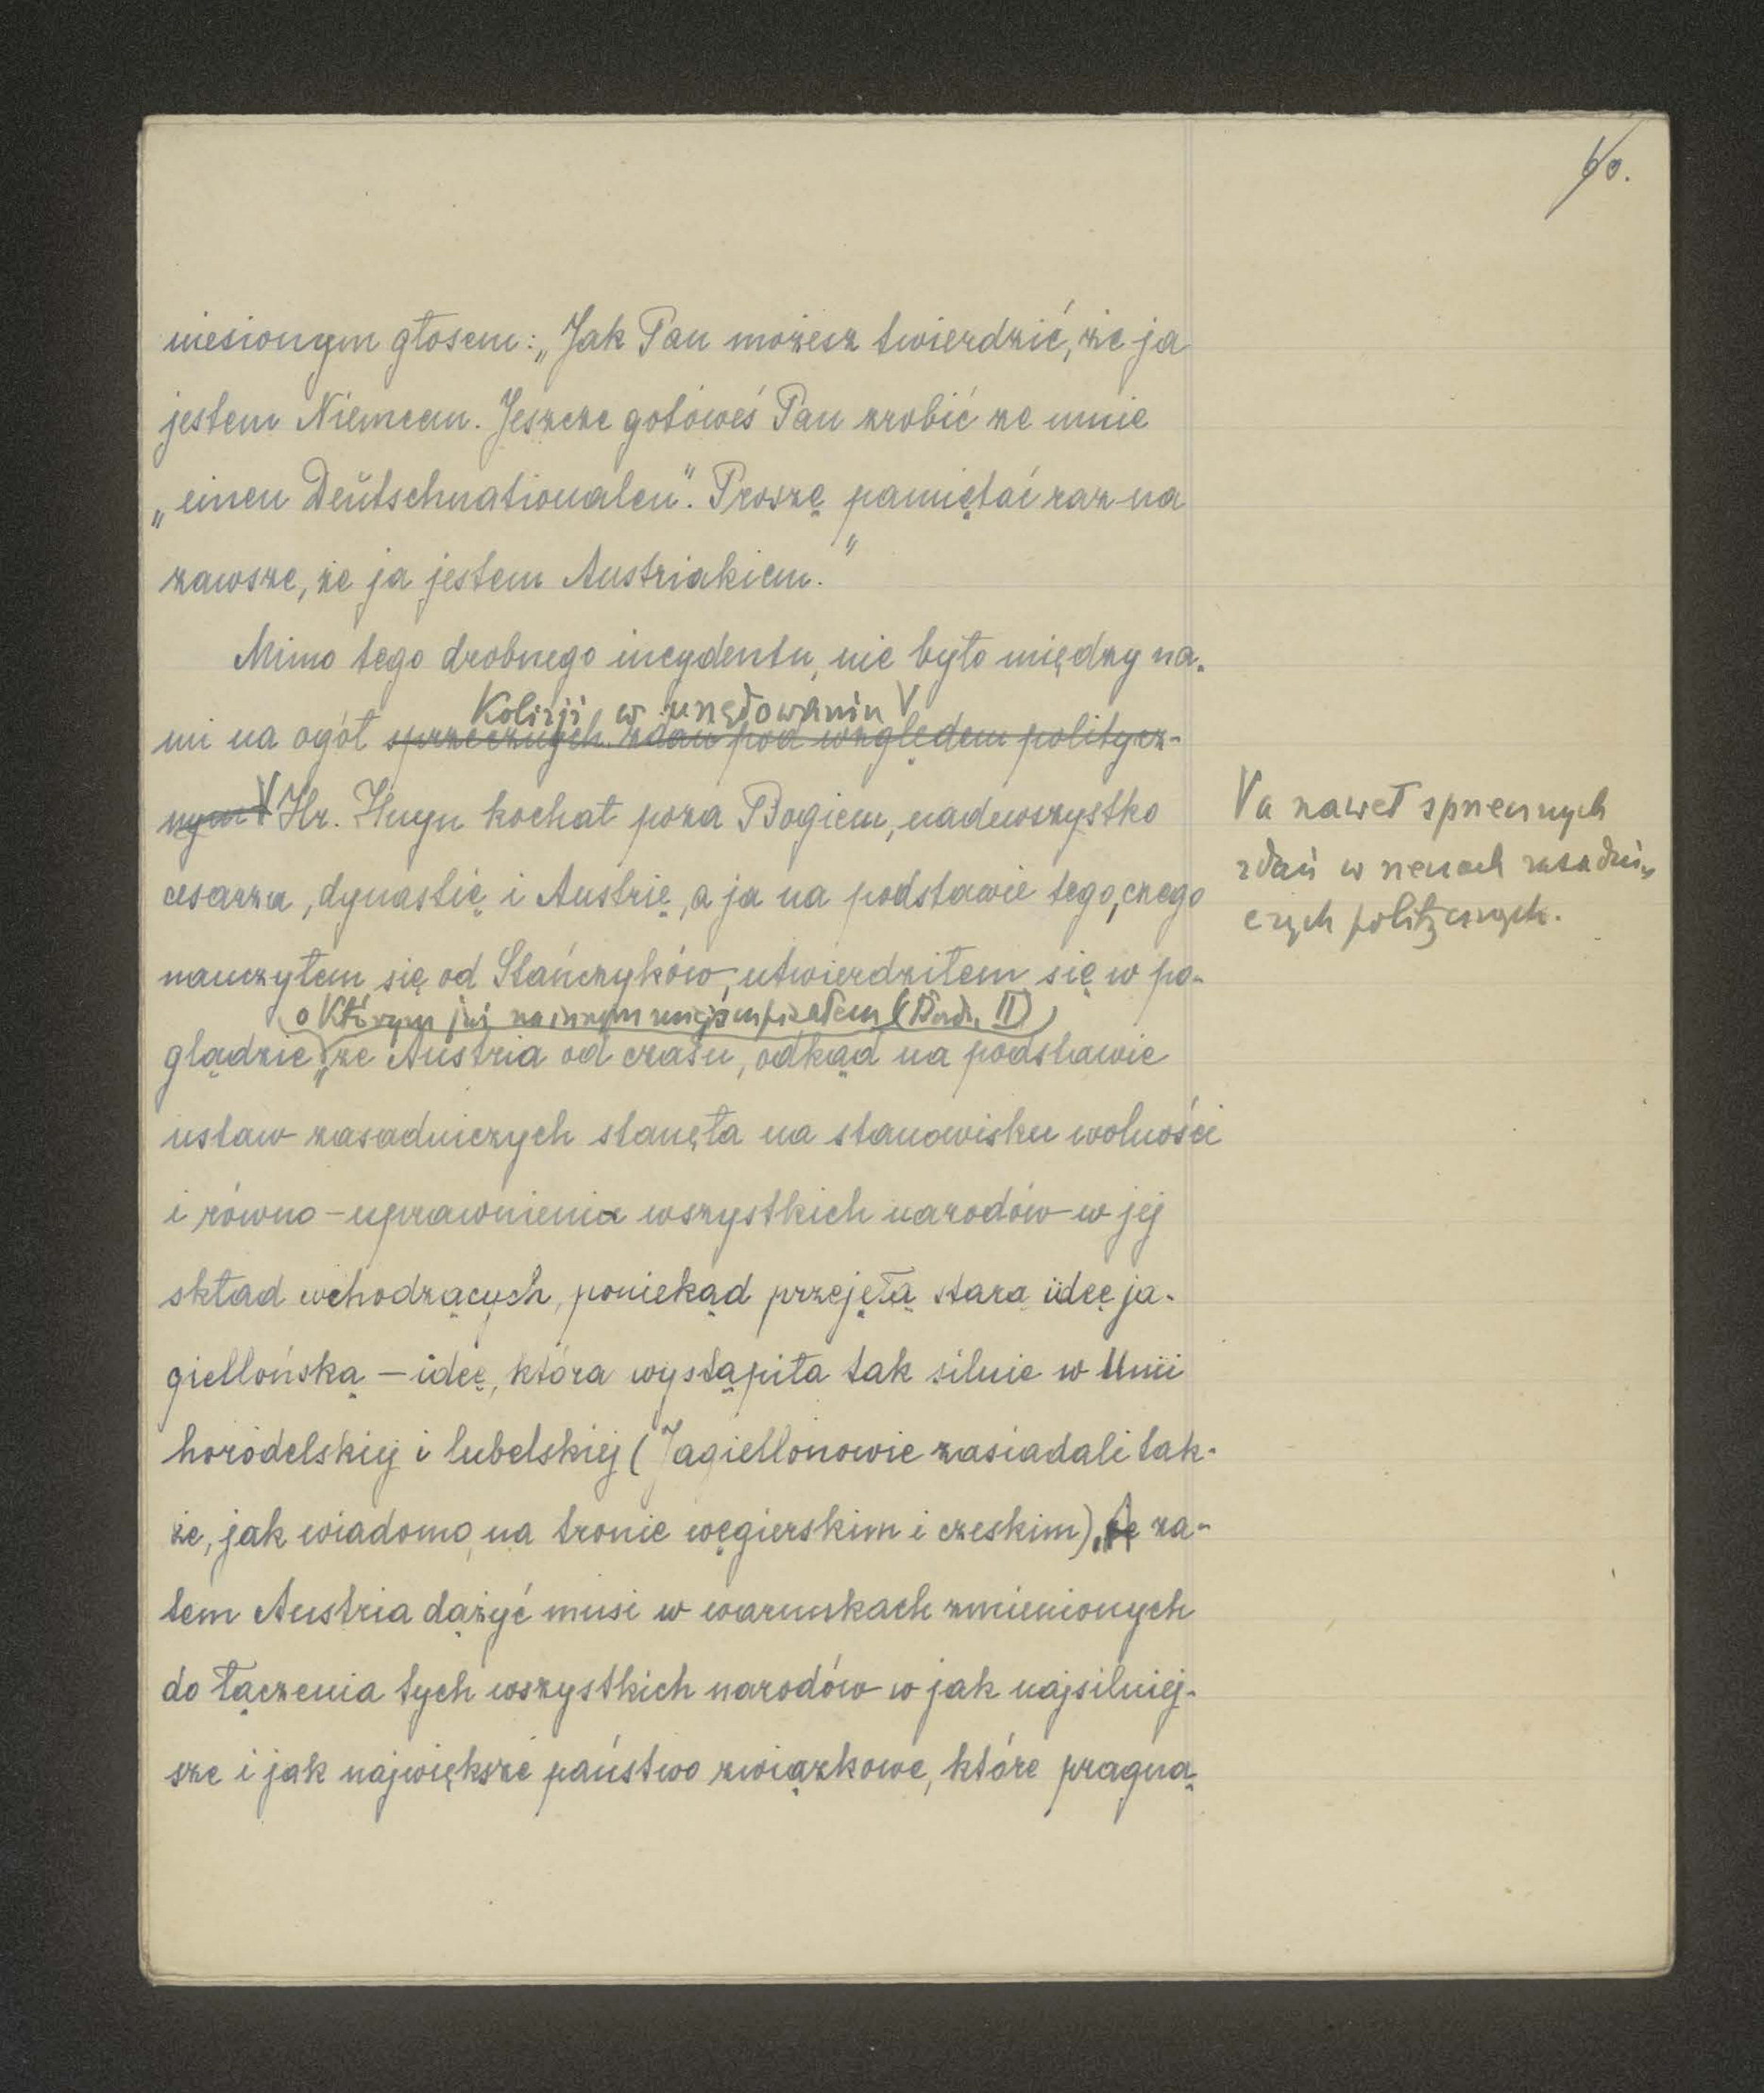 60.
niesionym głosem: „Jak Pan możesz twierdzić, że ja
jestem Niemcem. Jeszcze gotoweś Pan zrobić ze mnie
„einen Deŭtschnationalen”. Proszę pamiętać raz na
zawsze, że ja jestem Austriakiem.”
Mimo tego drobnego incydentu, nie było między na-
Kolizji w urzędowaniu V
mi na ogół sprzecznych zdań pod względem politycz-
nym V Hr. Huyn kochał poza Bogiem, nadewszystko
V a nawet sprzecznych
zdań w rzeczach zasadni-
czych politycznych.
cesarza, dynastię i Austrię, a ja na podstawie tego, czego
nauczyłem się od Stańczyków, utwierdziłem się w po-
(o którym już na innym miejscu pisałem (II)
glądzie, że Austria od czasu, odkąd na podstawie
ustaw zasadniczych stanęła na stanowisku wolności
i równo-uprawnienia wszystkich narodów w jej
skład wchodzących, poniekąd przejęła starą ideę ja-
giellońską – ideę, która wystąpiła tak silnie w Unii
horodelskiej i lubelskiej (Jagiellonowie zasiadali tak-
że, jak wiadomo, na tronie węgierskim i czeskim). A za-
tem Austria dążyć musi w warunkach zmienionych
do łączenia tych wszystkich narodów w jak najsilniej-
sze i jak największe państwo związkowe, które pragną